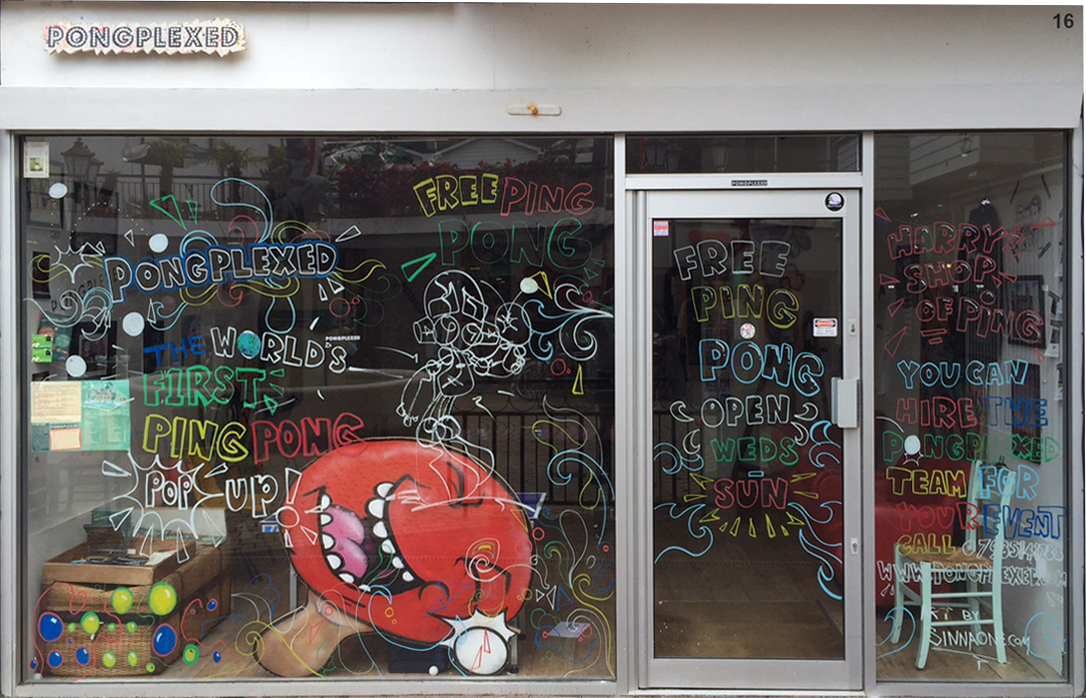 PONGPLEXED
16
PONGPLEXED
THE WORLD'S
FIRST
PING PONG
POP UP!
FREE PING
PONG
PONGPLEXED
PONGPLEXED
FREE
PING
PONG
OPEN
WEDS
-
SUN
HARRY'S
SHOP
OF PING
YOU CAN
HIRE THE
PONGPLEXED
TEAM FOR
YOUR EVENT
CALL
WWW.PONGPLEXED.COM
ART BY
SINNAONE.COM